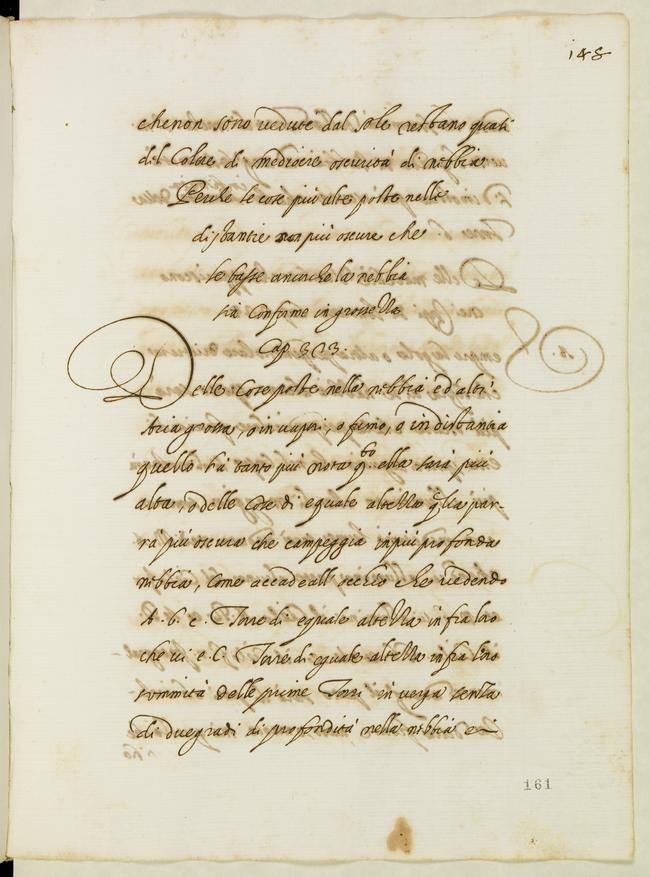 148
che non sono vedute dal sole restano quasi
del Colore di mediocre oscurità di nebbia.
Perche le cose più alte poste nelle
distantie son più oscure che
le basse ancorche la nebbia
sia Conforme in grossezza
Cap. 313.
Delle Cose poste nella nebbia ed'altr'
Aria grossa, o in vapori, o fumo, o in distantia
quello sia tanto più nota q.to ella sarà più
alta, o delle Cose di eguale altezza q̃lla par-
rà più oscura che campeggia in più profonda
nebbia, Come accade all'occhio che vedendo
A. b. c. Torre di eguale altezza infra loro
che vi e C Torre di eguale altezza infra loro
sommità delle prime Torri in verga senza
di due gradi di profondità nella nebbia e
161